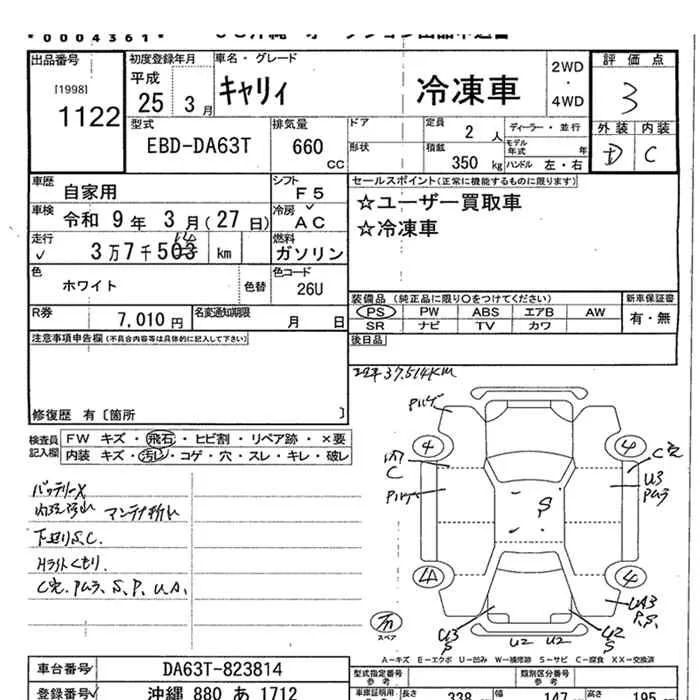 *0004361*
出品番号
[1998]
1122
初度登録年月
平成
25 3月
車名・グレード
キャリィ
冷凍車
2WD
・
4WD
評価点
3
外装 内装
D C
型式
EBD-DA63T
排気量
660
CC
ドア
形状
定員
2 人
積載
350 kg
ディーラー・並行
モデル年式 年
ハンドル 左・右
車歴
自家用
シフト
F5
車検
令和 9年 3月(27日)
冷房
AC
走行
3万7千503
km
燃料
ガソリン
色
ホワイト
色替
色コード
26U
R券
7,010円
名変通知期限
月 日
セールスポイント(正常に機能するものに限ります)
☆ユーザー買取車
☆冷凍車
装備品(純正品に限り○をつけてください)
PS PW ABS エアB AW
SR ナビ TV カワ
新車保証書
有・無
後日品
注意事項申告欄(不具合内容等は具体的に記入して下さい)
修復歴 有〔箇所 〕
検査員記入欄
FW キズ・飛石・ヒビ割・リペア跡・×要
内装 キズ・汚レ・コゲ・穴・スレ・キレ・破レ
37,514KM
バッテリーX
下廻りS.C.
C穴.
S.P.
4
4
C
C穴
U3
S
4
U3
S
U2 U2
U2
S
スペア
A-キズ E-エクボ U-凹み W-補修跡 S-サビ C-腐食 XX-交換済
車台番号
DA63T-823814
登録番号
沖縄 880 あ 1712
型式指定番号
参考
類別区分番号
参考
車庫証明用
長さ
338
幅
147
高さ
195